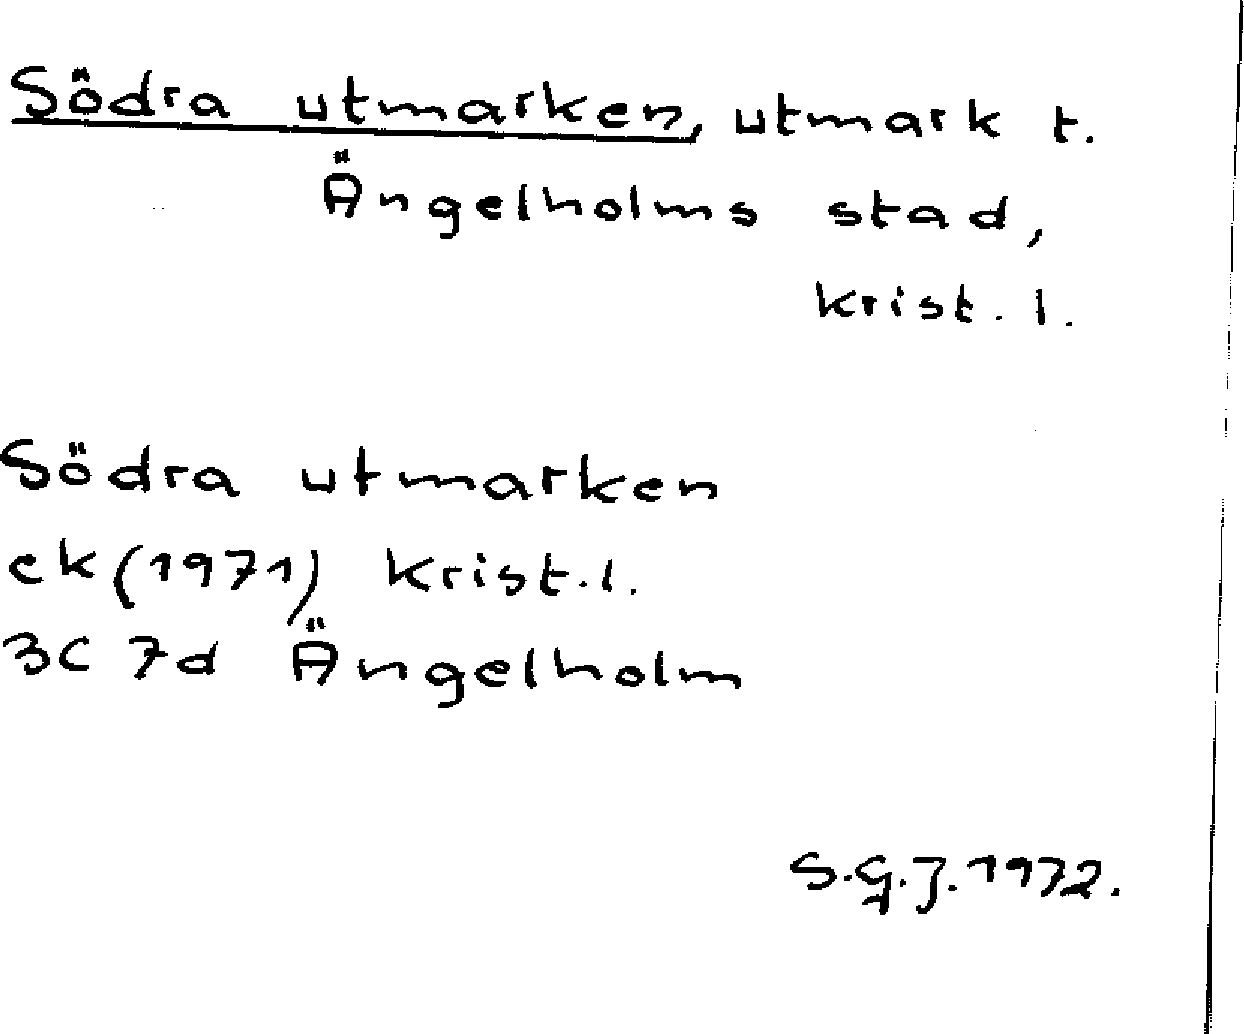 Södra utmarken, utmark t.
Ängelholms stad,
Krist. l.
Södra utmarken
ek (1971) Krist. l.
3C 7d Ängelholm
S.G.J. 1972.